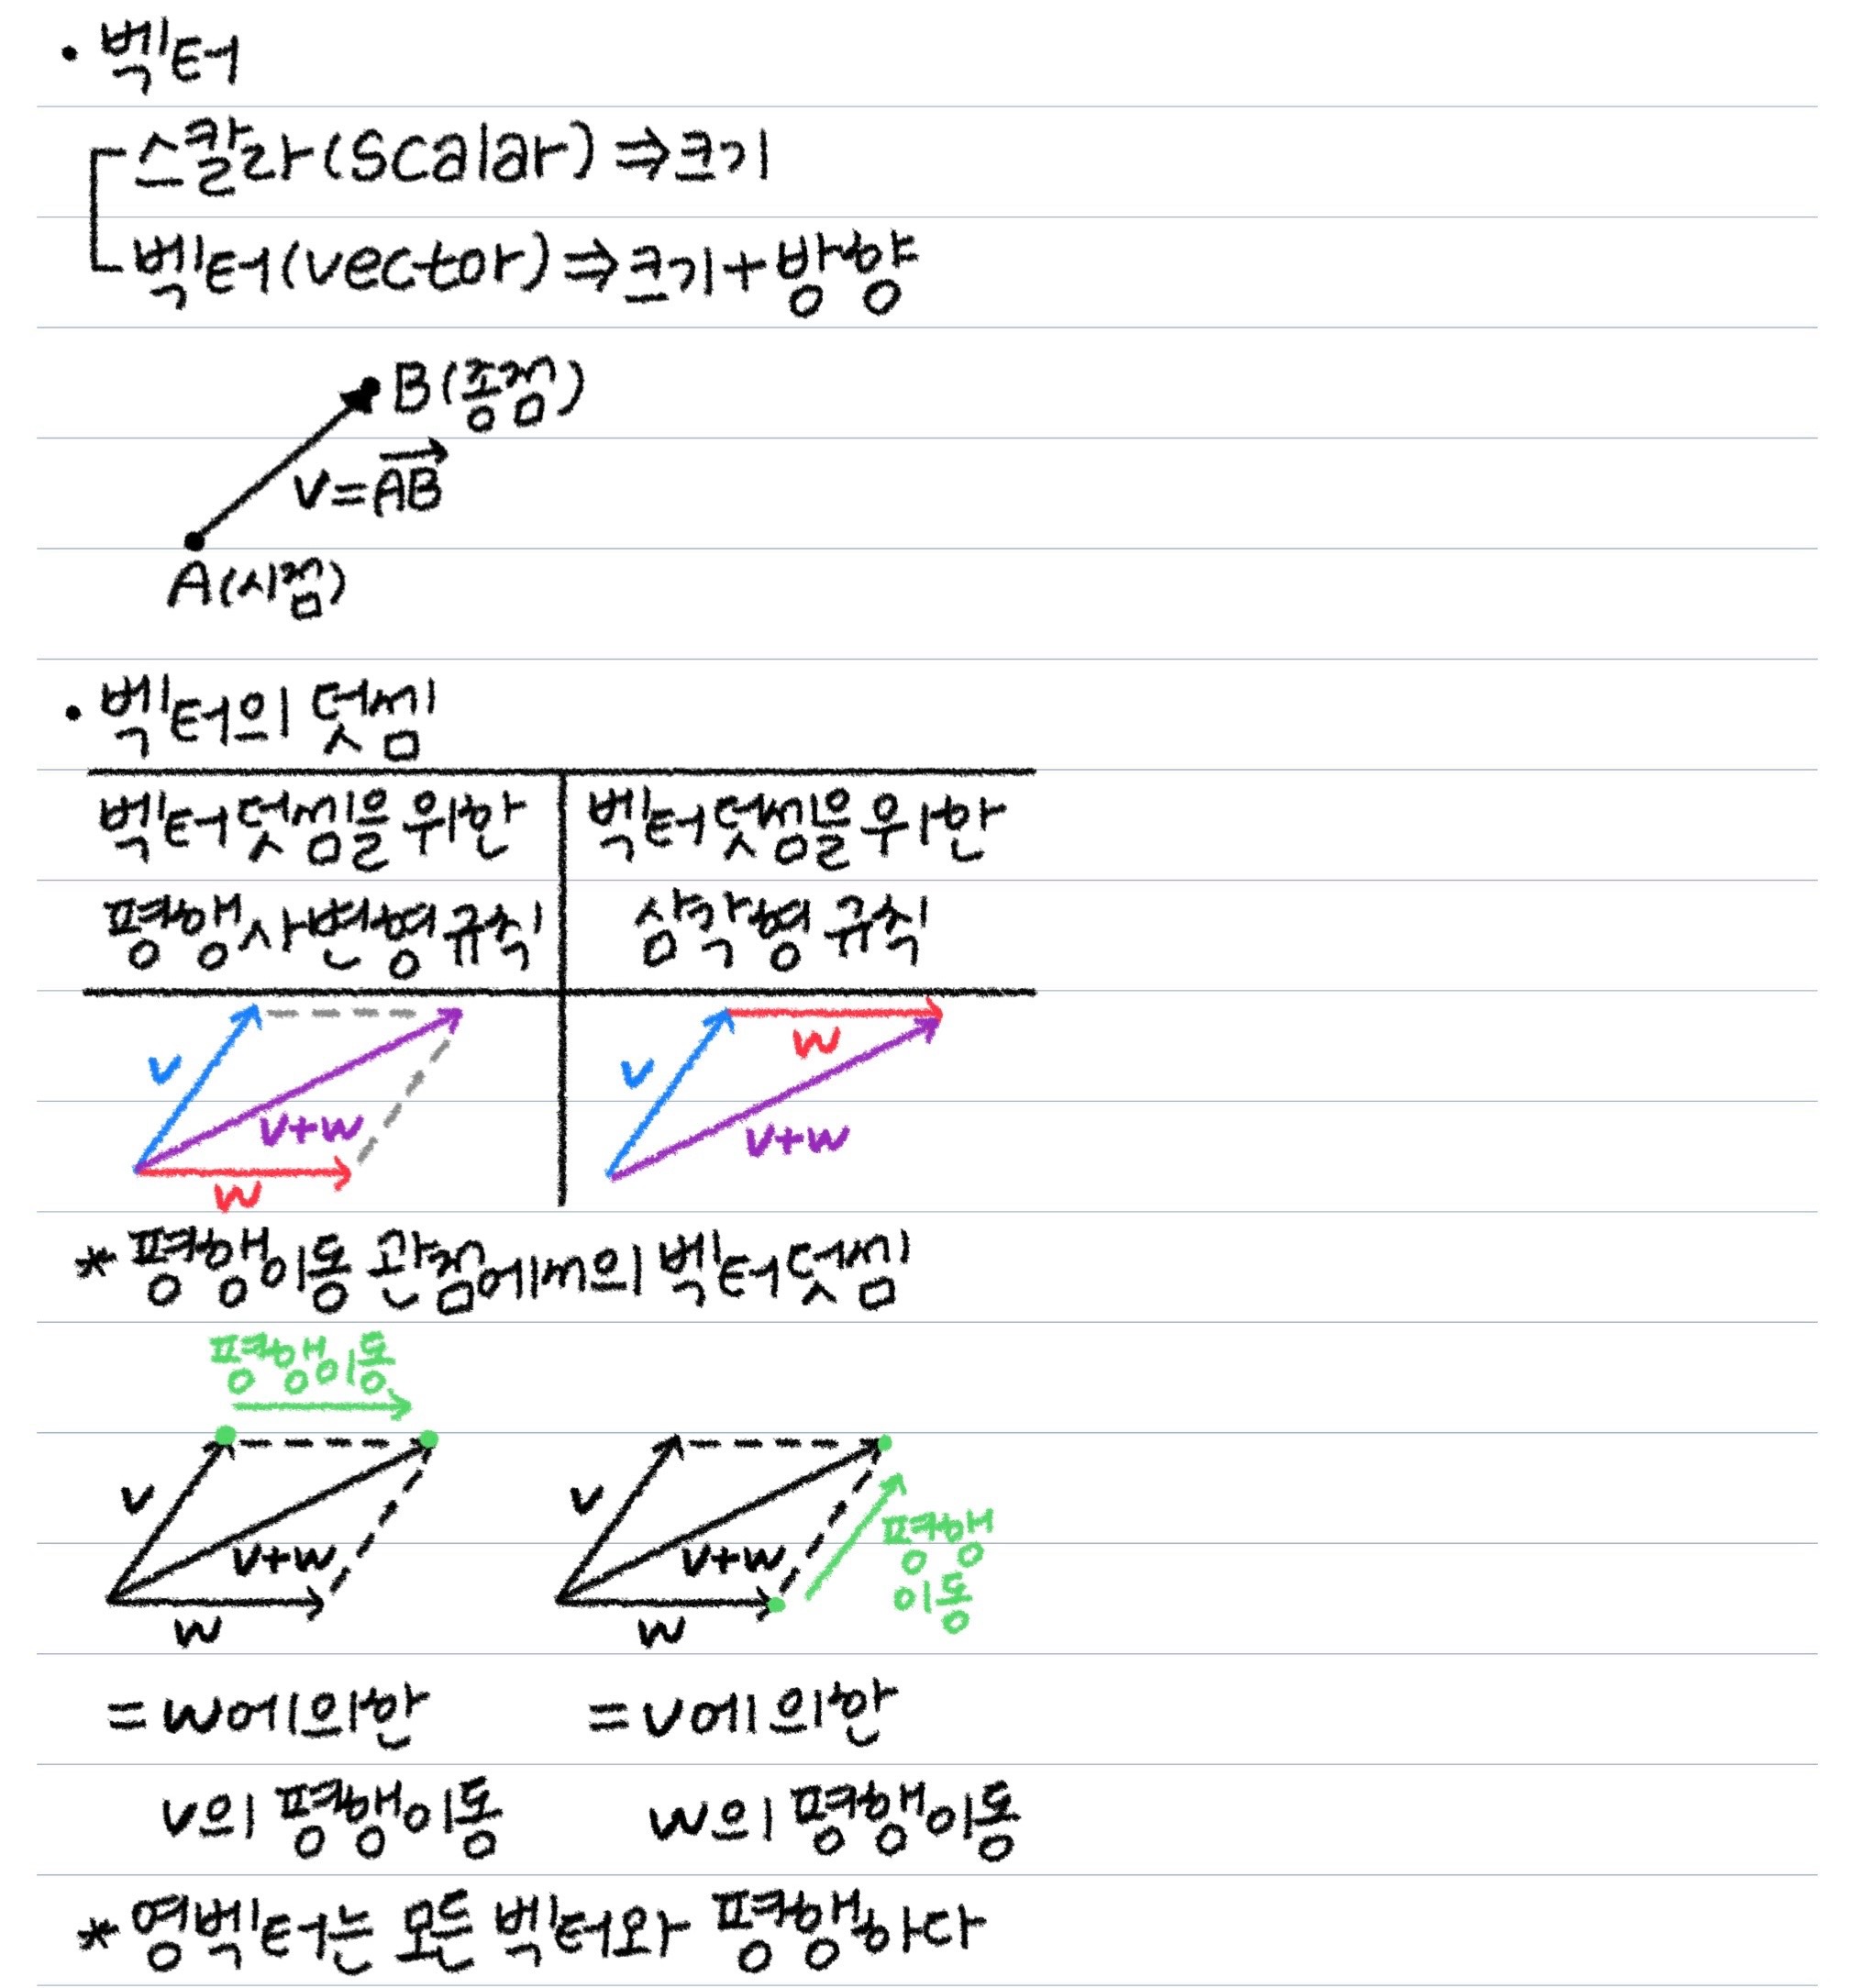 • 벡터
스칼라(scalar) ⇒ 크기
벡터(vector) ⇒ 크기+방향
B(종점)
v=\overrightarrow{AB}
A(시점)
• 벡터의 덧셈
벡터덧셈을 위한
평행사변형규칙
벡터덧셈을 위한
삼각형 규칙
v
v+w
w
w
v
v+w
*평행이동 관점에서의 벡터덧셈
평행이동
v
v+w
w
v
v+w
w
평행
이동
=w에의한
v의 평행이동
=v에 의한
w의 평행이동
*영벡터는 모든 벡터와 평행하다